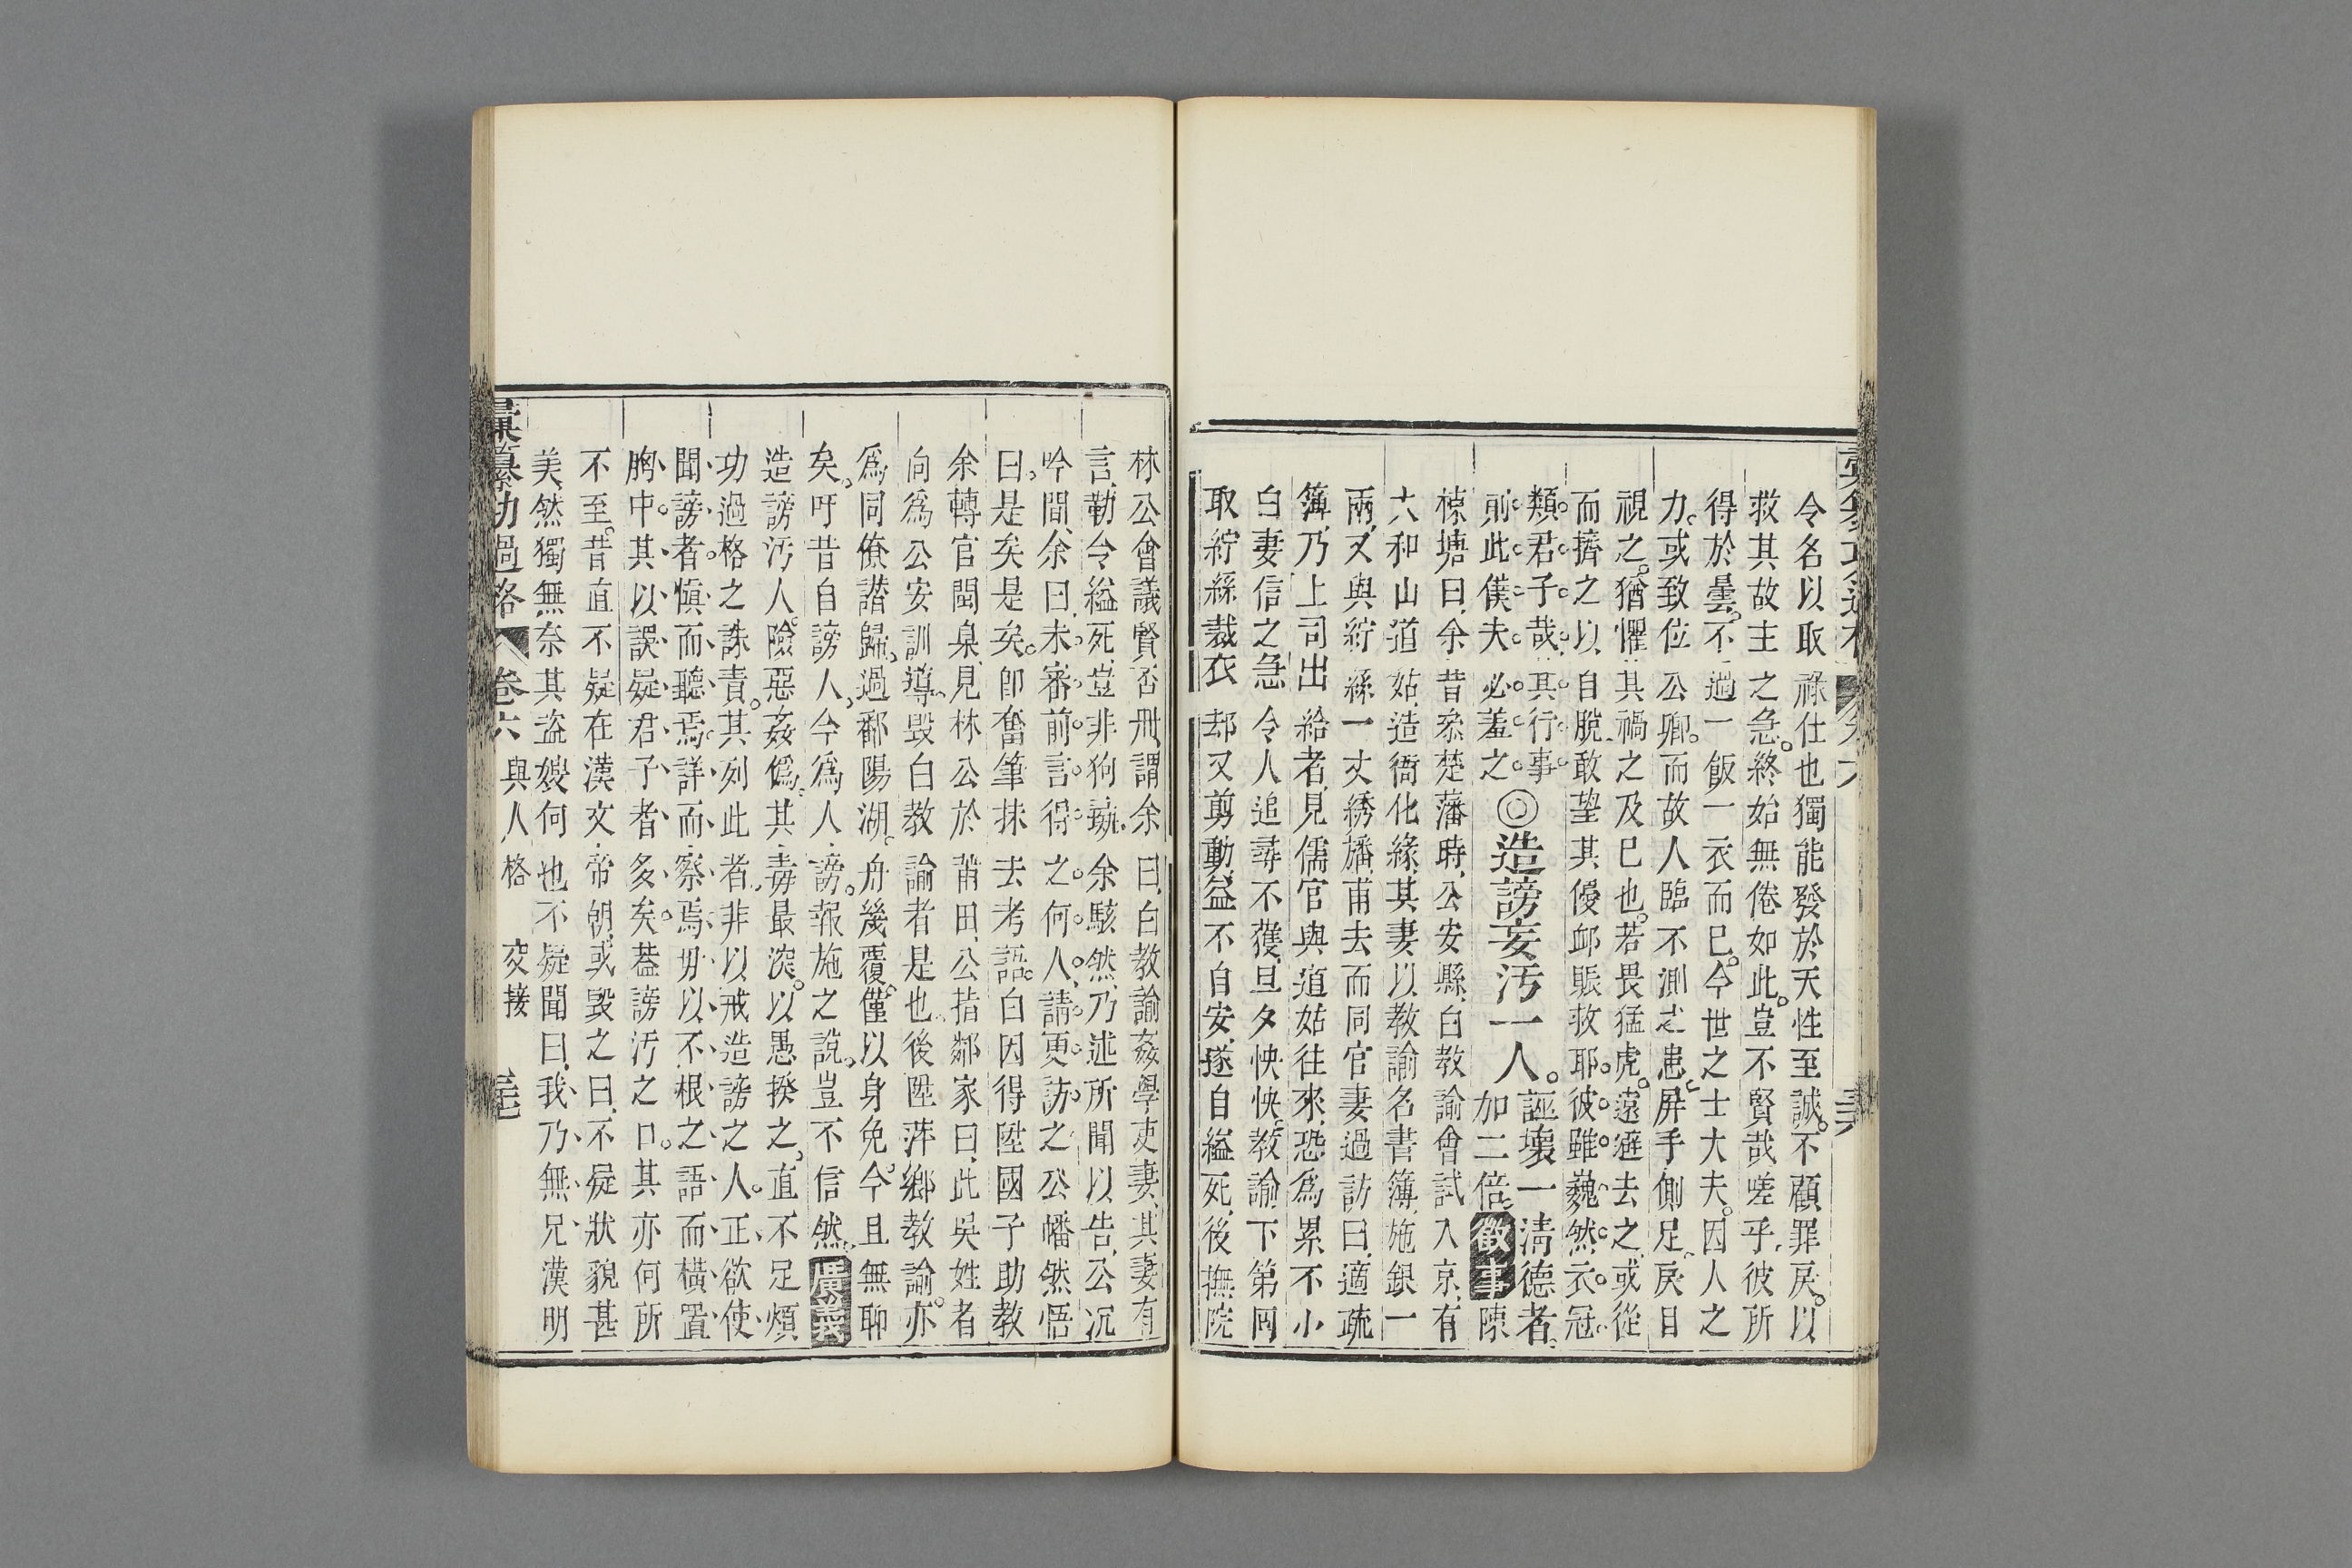 令名以取祿仕也獨能發於天性至誠不顧罪戾以
救其故主之急終始無倦如此豈不賢哉嗟乎彼所
得於曇不過一飯一衣而已今世之士大夫因人之
力或致位公卿而故人臨不測之患屏手側足戾目
視之猶懼其禍之及已也若畏猛虎遠避去之或從
而擠之以自脫敢望其優卹賑救耶彼雖巍然衣冠
類君子哉其行事
前此僕夫必羞之◎造謗妄汚一人誣壞一淸德者加二倍徵事陳
棟塘曰余昔叅楚藩時公安縣白教諭會試入京有
六和山道姑造衙化緣其妻以教諭名書簿施銀一
兩又與紵絲一丈綉旛甫去而同官妻過訪曰適疏
簿乃上司出給者見儒官與道姑往來恐爲累不小
白妻信之急令人追尋不獲旦夕怏怏教諭下第囘
取紵絲裁衣却又剪動益不自安遂自縊死後撫院
林公會議賢否冊謂余曰白教諭姦學吏妻其妻有
言勒令縊死豈非狗彘余駭然乃述所聞以告公沉
吟間余曰未審前言得之何人請更訪之公幡然悟
曰是矣是矣卽奮筆抹去考語白因得陞國子助教
余轉官閩臬見林公於莆田公指鄰家曰此吳姓者
向爲公安訓導毀白教諭者是也後陞萍鄉教諭亦
爲同僚譖歸過鄱陽湖舟幾覆僅以身免今且無聊
矣吁昔自謗人今爲人謗報施之說豈不信然廣義
造謗汚人險惡姦僞其毒最深以愚揆之直不足煩
功過格之誅責其列此者非以戒造謗之人正欲使
聞謗者愼而聽焉詳而察焉毋以不根之語而橫置
胸中其以誤疑君子者多矣葢謗汚之口其亦何所
不至昔直不疑在漢文帝朝或毀之曰不疑狀貌甚
美然獨無奈其盜嫂何也不疑聞曰我乃無兄漢明
彙纂功過格 卷六 與人格 交接 三七